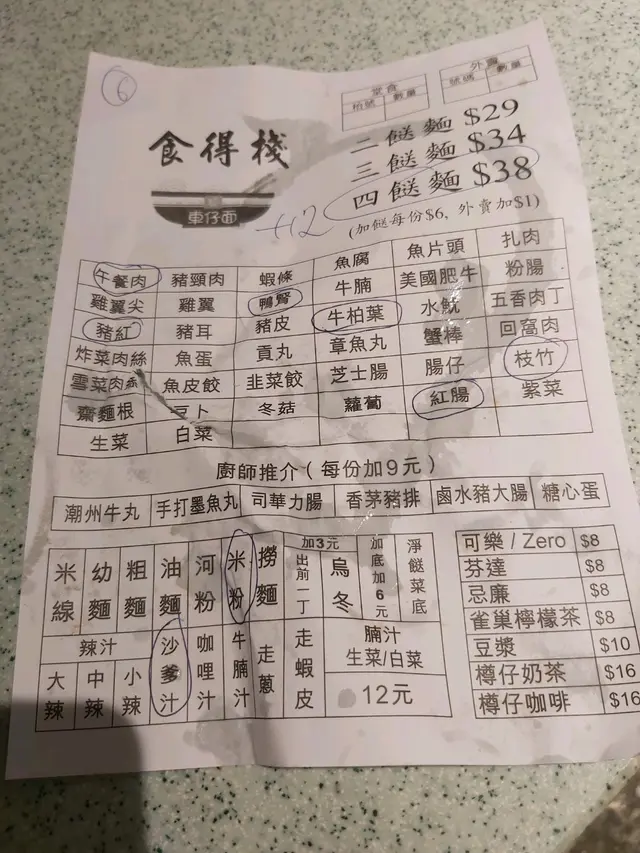 6
堂食 外賣
枱號 數量 號碼 數量
食得棧
車仔面
二餸麵 $29
三餸麵 $34
四餸麵 $38
+12
(加餸每份$6, 外賣加$1)
午餐肉 豬頸肉 蝦條 魚腐 魚片頭 扎肉
雞翼尖 雞翼 鴨腎 牛腩 美國肥牛 粉腸
豬紅 豬耳 豬皮 牛柏葉 水魷 五香肉丁
炸菜肉絲 魚蛋 貢丸 章魚丸 蟹棒 回窩肉
雪菜肉絲 魚皮餃 韭菜餃 芝士腸 腸仔 枝竹
齋麵根 豆卜 冬菇 蘿蔔 紅腸 紫菜
生菜 白菜
廚師推介 ( 每份加9元 )
潮州牛丸 手打墨魚丸 司華力腸 香茅豬排 鹵水豬大腸 糖心蛋
米線 幼麵 粗麵 油麵 河粉 米粉 撈麵 加3元 出前一丁 烏冬 加底加6元 淨餸菜底
辣汁 大辣 中辣 小辣 沙爹汁 咖哩汁 牛腩汁 走蔥 走蝦皮
腩汁
生菜/白菜
12元
可樂 / Zero $8
芬達 $8
忌廉 $8
雀巢檸檬茶 $8
豆漿 $10
樽仔奶茶 $16
樽仔咖啡 $16